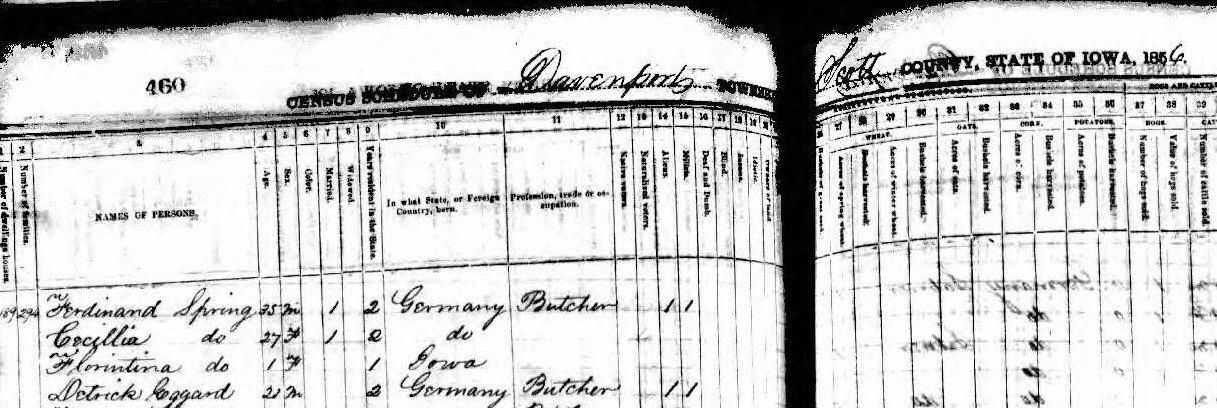 460
CENSUS SCHEDULE OF Davenport TOWNSHIP
Scott COUNTY, STATE OF IOWA, 1856.
HOGS AND CATTLE
1 2 3 4 5 6 7 8 9 10 11 12 13 14 15 16 17 18 19
27 28 29 30 31 32 33 34 35 36 37 38 39
WHEAT. OATS. CORN. POTATOES. HOGS.
Number of dwelling houses
Number of families.
NAMES OF PERSONS.
Age.
Sex.
Color.
Married.
Widowed
Years resident in the State.
In what State, or Foreign
Country, born.
Profession, trade or oc-
cupation.
Native voters.
Naturalized voters.
Aliens.
Militia.
Deaf and Dumb.
Blind.
Insane.
Idiotic.
Owners of land
Acres of spring wheat.
Bushels harvested.
Acres of winter wheat.
Bushels harvested.
Acres of oats.
Bushels harvested.
Acres of corn.
Bushels harvested.
Acres of potatoes.
Bushels harvested.
Number of hogs sold.
Value of hogs sold.
Number of cattle sold.
189 294 Ferdinand Spring 35 m 1 2 Germany Butcher 1 1
Cecillia do 27 F 1 2 do
Florintina do 1 F 1 Iowa
Detrick Eggard 21 m 2 Germany Butcher 1 1